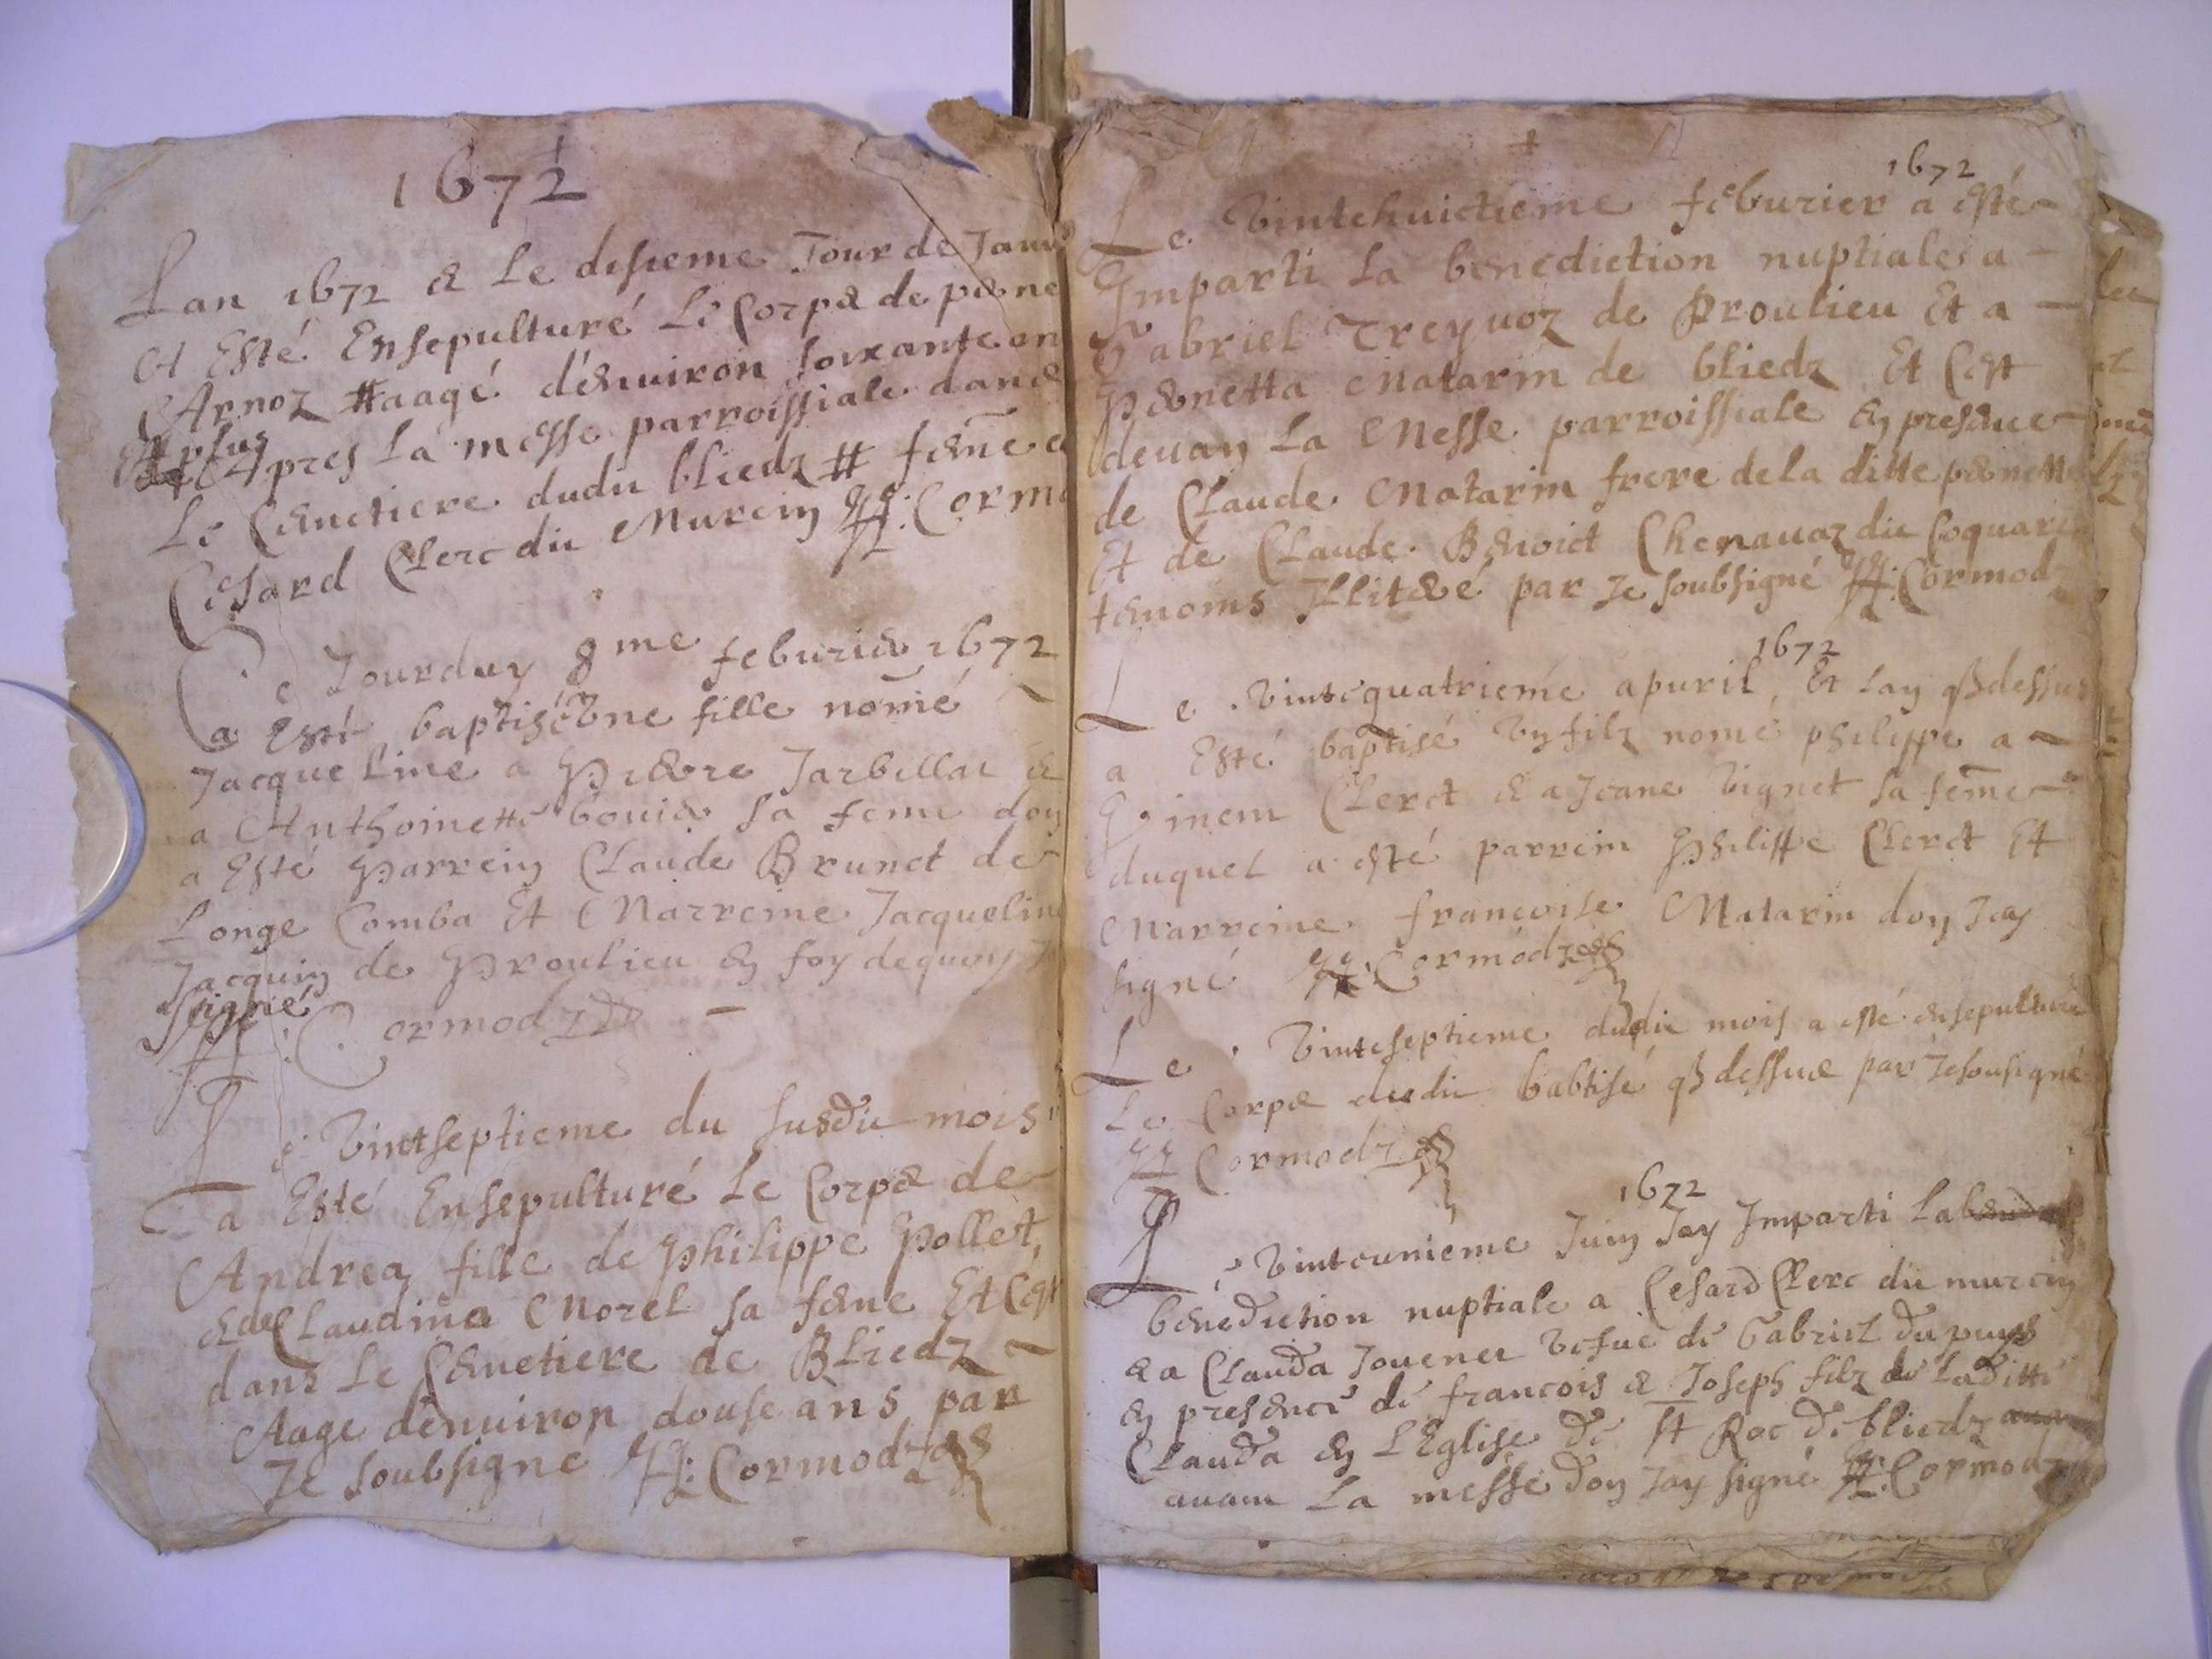 1672
Lan 1672 & Le disieme Jour de Janu
Et Esté Ensepulturé Le Corps de perne
Arnoz # aagé d'enuiron soixante an
Et plus
Apres La messe parroissiale dans
Le Cemetiere dudit bliedz # feme
Cesard Clerc dit Murcin H: Corm
Ce Jourduy 8me feburier 1672
a Esté baptisé Vne fille nomé
Jacqueline a Pierre Jarbillat &
a Anthoinette bouier sa feme don
a Esté Parrein Claude Brunet de
Longe Comba Et Marreine Jacqueline
Jacquin de Proulieu en foy dequoy J
signé
H: Cormodz
Le Vintseptieme du susdit mois
a Esté Ensepulturé Le Corps de
Andrea fille de Philippe Pollet,
& de Claudina Morel sa feme Et C'est
dans Le Cemetiere de Bliedz
Aage denuiron douse ans par
Je soubsigné H: Cormodz
1672
Le Vintehuictieme feburier a esté
Imparti La benediction nuptiale a
Gabriel Treyuoz de Proulieu Et a
Pernetta Matarin de bliedz Et C'est
deuan La Messe parroissiale en presence
de Claude Matarin frere de la ditte pernette
Et de Claude Benoict Chenauaz dit Coquard
temoins Illiteré par Je soubsigné H: Cormod
1672
Le Vintequatrieme apuril Et Lan qs dessus
a Esté baptisé Vn filz nomé philippe a
Pinem Clerct & a Jeane Vignet sa feme
duquel a esté parrein Philippe Clerct Et
Marreine francoise Matarin don Jay
signé H: Cormodz
Le Vinteseptieme dudit mois a esté ensepulturé
Le Corps dudit babtisé qs dessus par Je sousigné
H Cormodz
1672
Le Vinteunieme Juin Jay Imparti La
benediction nuptiale a Cesard Clerc dit murcin
& a Clauda Jouener Vefue de Gabriel du puys
en presence de francois & Joseph filz de Laditte
Clauda en L'Eglise de St Roc de bliedz
auant La messe don Jay signé H: Cormodz